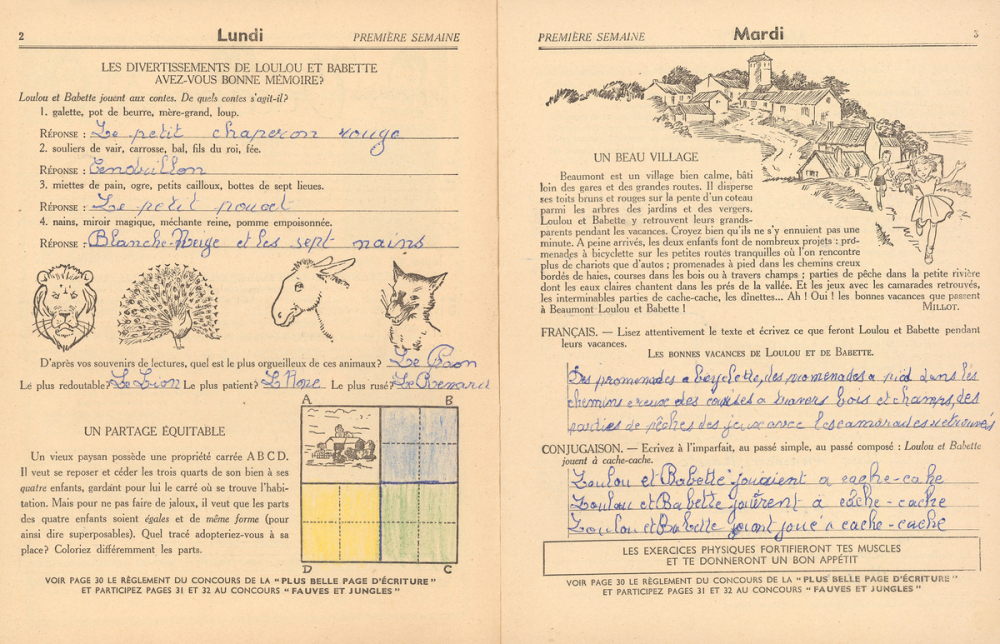 2 Lundi PREMIÈRE SEMAINE
LES DIVERTISSEMENTS DE LOULOU ET BABETTE
AVEZ-VOUS BONNE MÉMOIRE?
Loulou et Babette jouent aux contes. De quels contes s'agit-il?
1. galette, pot de beurre, mère-grand, loup.
RÉPONSE : Le petit chaperon rouge
2. souliers de vair, carrosse, bal, fils du roi, fée.
RÉPONSE : Cendrillon
3. miettes de pain, ogre, petits cailloux, bottes de sept lieues.
RÉPONSE : Le petit poucet
4. nains, miroir magique, méchante reine, pomme empoisonnée.
RÉPONSE : Blanche-Neige et les sept nains
D'après vos souvenirs de lectures, quel est le plus orgueilleux de ces animaux? Le Paon
Le plus redoutable? Le Lion Le plus patient? L'Ane Le plus rusé? Le Renard
UN PARTAGE ÉQUITABLE
Un vieux paysan possède une propriété carrée A B C D.
Il veut se reposer et céder les trois quarts de son bien à ses
quatre enfants, gardant pour lui le carré où se trouve l'habi-
tation. Mais pour ne pas faire de jaloux, il veut que les parts
des quatre enfants soient égales et de même forme (pour
ainsi dire superposables). Quel tracé adopteriez-vous à sa
place? Coloriez différemment les parts.
A B
D C
VOIR PAGE 30 LE RÈGLEMENT DU CONCOURS DE LA "PLUS BELLE PAGE D'ÉCRITURE"
ET PARTICIPEZ PAGES 31 ET 32 AU CONCOURS "FAUVES ET JUNGLES"
PREMIÈRE SEMAINE Mardi 3
UN BEAU VILLAGE
Beaumont est un village bien calme, bâti
loin des gares et des grandes routes. Il disperse
ses toits bruns et rouges sur la pente d'un coteau
parmi les arbres des jardins et des vergers.
Loulou et Babette y retrouvent leurs grands-
parents pendant les vacances. Croyez bien qu'ils ne s'y ennuient pas une
minute. A peine arrivés, les deux enfants font de nombreux projets : pro-
menades à bicyclette sur les petites routes tranquilles où l'on rencontre
plus de chariots que d'autos ; promenades à pied dans les chemins creux
bordés de haies, courses dans les bois ou à travers champs ; parties de pêche dans la petite rivière
dont les eaux claires chantent dans les prés de la vallée. Et les jeux avec les camarades retrouvés,
les interminables parties de cache-cache, les dînettes... Ah ! Oui ! les bonnes vacances que passent
à Beaumont Loulou et Babette !
MILLOT.
FRANÇAIS. — Lisez attentivement le texte et écrivez ce que feront Loulou et Babette pendant
leurs vacances.
LES BONNES VACANCES DE LOULOU ET DE BABETTE.
Des promenades a bicyclette, des promenades a pied dans les
chemins creux des courses a travers bois et champs, des
parties de pêches des jeux avec les camarades retrouvés
CONJUGAISON. — Ecrivez à l'imparfait, au passé simple, au passé composé : Loulou et Babette
jouent à cache-cache.
Loulou et Babette jouaient a cache-cache
Loulou et Babette jouèrent à câche-cache
Loulou et Babette jouant joué a cache-cache
LES EXERCICES PHYSIQUES FORTIFIERONT TES MUSCLES
ET TE DONNERONT UN BON APPÉTIT
VOIR PAGE 30 LE RÈGLEMENT DU CONCOURS DE LA "PLUS BELLE PAGE D'ÉCRITURE"
ET PARTICIPEZ PAGES 31 ET 32 AU CONCOURS "FAUVES ET JUNGLES"